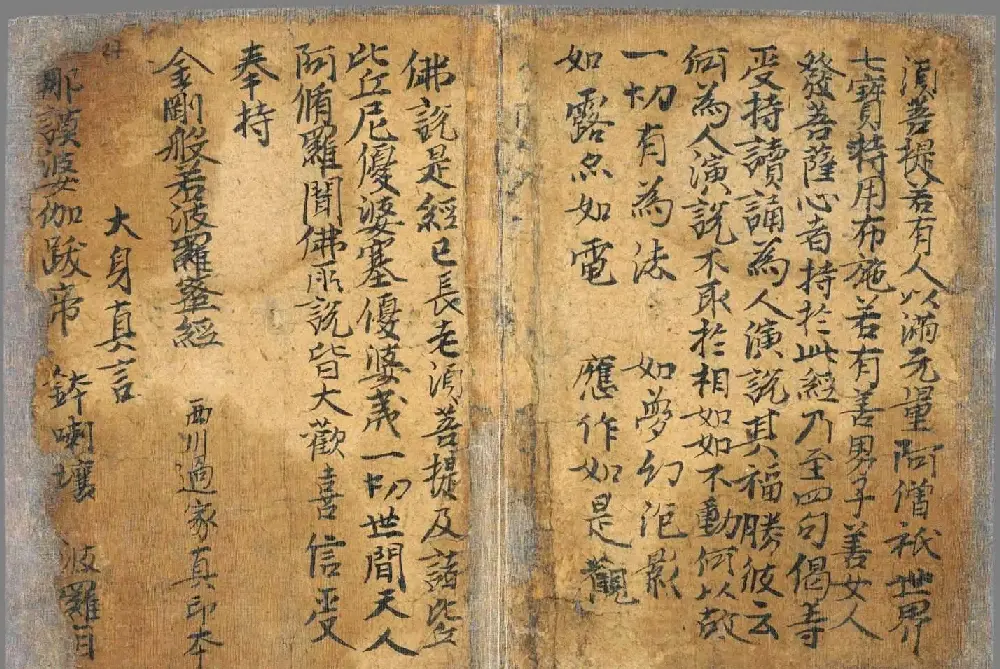 須菩提若有人以滿无量阿僧祇世界
七寶持用布施若有善男子善女人
發菩薩心者持於此經乃至四句偈等
受持讀誦為人演說其福勝彼云
何為人演說不取於相如如不動何以故
一切有為法 如夢幻泡影
如露亦如電 應作如是觀
佛說是經已長老須菩提及諸比丘
比丘尼優婆塞優婆夷一切世間天人
阿脩羅聞佛所說皆大歡喜信受
奉持
金剛般若波羅蜜經 西川過家真印本
大身真言
那謨婆伽跋帝 鉢喇壤 波羅